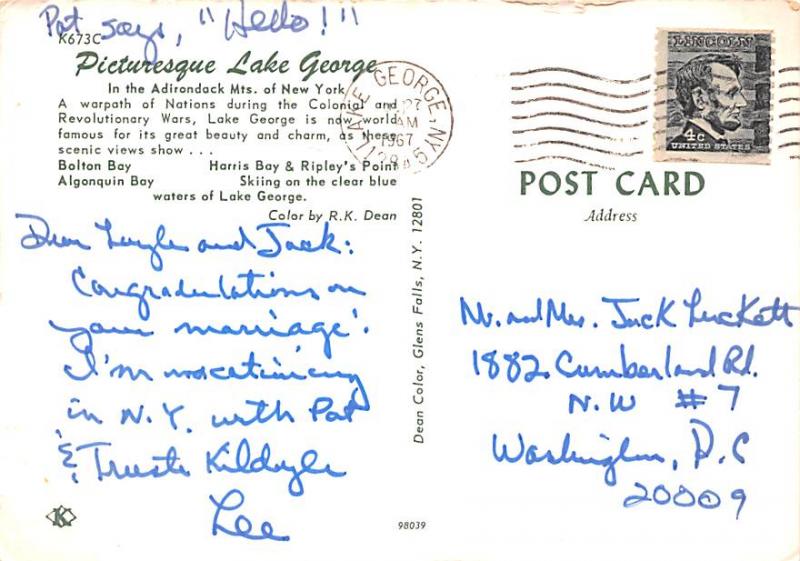 Pat says, "Hello!"
K673C
Picturesque Lake George
In the Adirondack Mts. of New York
A warpath of Nations during the Colonial and
Revolutionary Wars, Lake George is now world
famous for its great beauty and charm, as these
scenic views show . . .
Bolton Bay Harris Bay & Ripley's Point
Algonquin Bay Skiing on the clear blue
waters of Lake George.
Color by R.K. Dean
Dear and Jack:
Congradulations on
your marriage!
I'm vacationing
in N.Y. with Pat
&
Lee
98039
Dean Color, Glens Falls, N.Y. 12801
LAKE GEORGE, N.Y.
27
AM
1967
LINCOLN
4c
UNITED STATES
POST CARD
Address
Mr. and Mrs. Jack Luckett
1882 Cumberland Rd.
N.W #7
Washington, D.C
20009